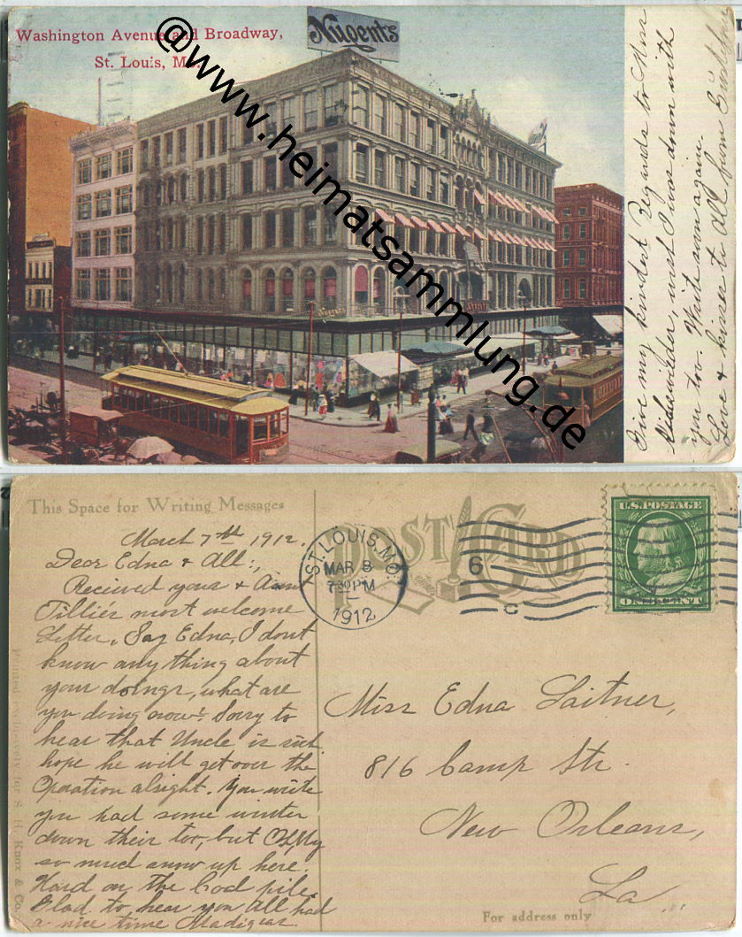 Washington Avenue and Broadway,
St. Louis, Mo.
Nugents
@www.heimatsammlung.de
Give my kindest Regards to Miss
wish I was down with
you too. Write soon again.
Love & kisses to all from
This Space for Writing Messages
March 7th 1912.
Dear Edna & All:,
Recieved yours & Aunt
Tillie's most welcome
Letter, Say Edna, I dont
know any thing about
your doings, what are
you doing now? Sorry to
hear that Uncle is sick
hope he will get over the
Opration alright. You write
you had some winter
down their too, but Oh My
so much snow up here
Hard on the Coal pile.
Glad to hear you All had
a nice time Madigras.
POST CARD
ST. LOUIS, MO.
MAR 8
7:30 PM
1912
6
C
U.S. POSTAGE
ONE CENT
Miss Edna Laitner,
816 Camp Str.
New Orleans,
La.
For address only
S. H. Knox & Co.